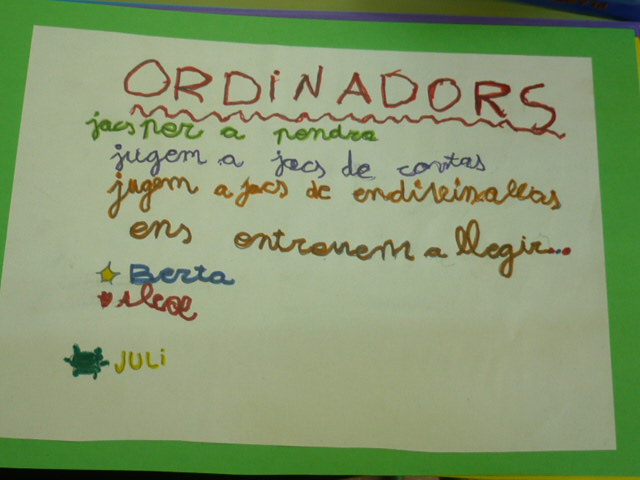 ORDINADORS
jacs per a pendra
jugem a jocs de contas
jugem a jocs de endivinallas
ens entrenem a llegir...
Berta
JULi